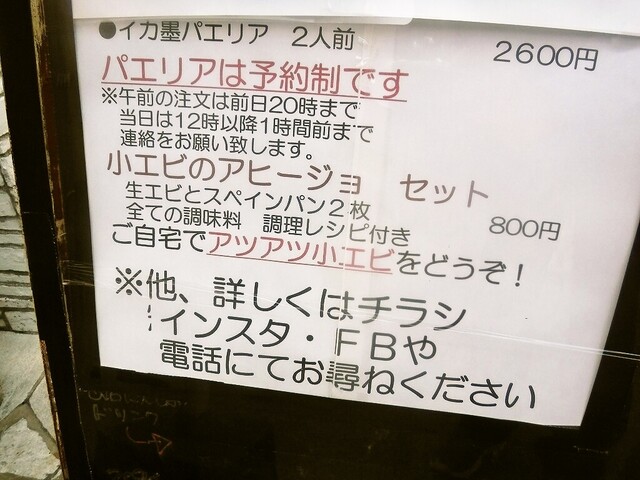 ●イカ墨パエリア 2人前 2600円
パエリアは予約制です
※午前の注文は前日20時まで
当日は12時以降1時間前まで
連絡をお願い致します。
小エビのアヒージョ セット
生エビとスペインパン2枚 800円
全ての調味料 調理レシピ付き
ご自宅でアツアツ小エビをどうぞ！
※他、詳しくはチラシ
インスタ・FBや
電話にてお尋ねください
ドリンク